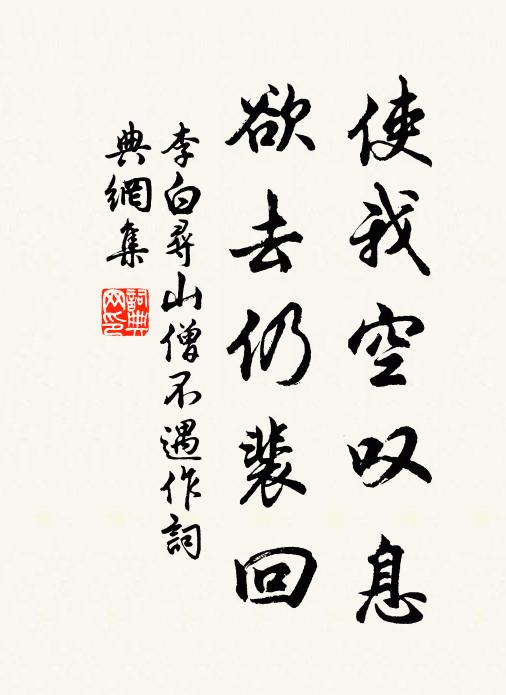 使我空叹息
欲去仍裴回
李白尋山僧不遇作詞
典網集
詞典网印